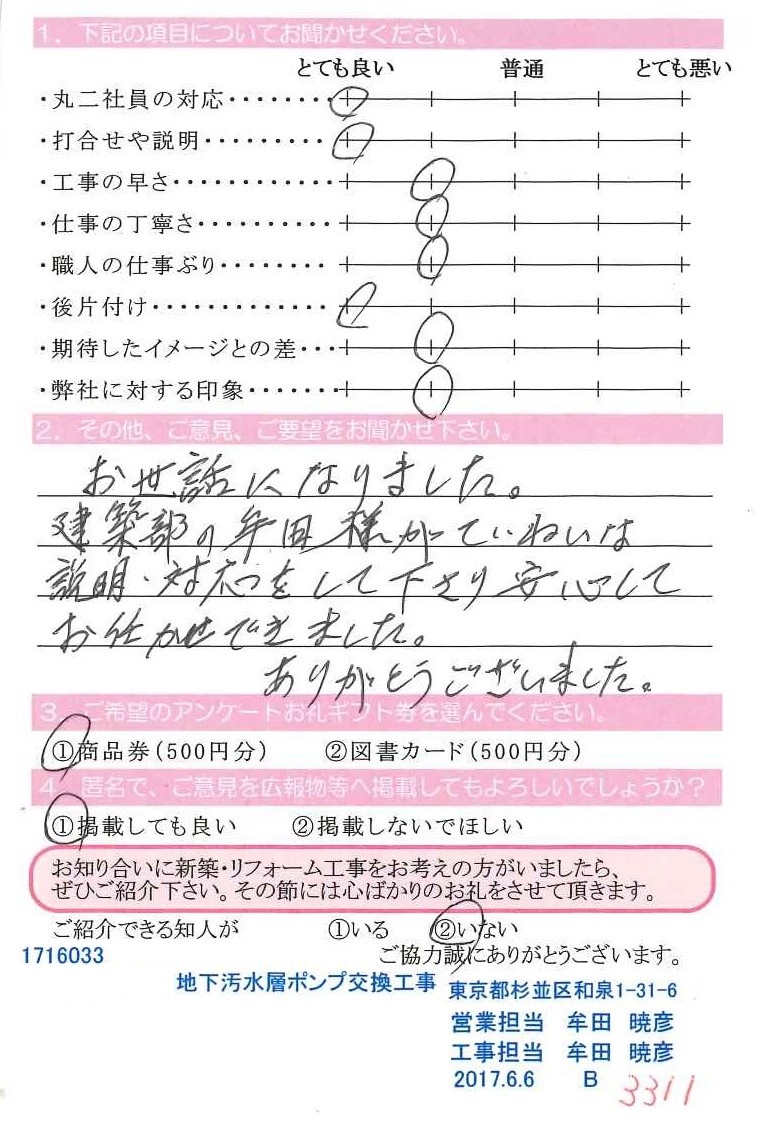 1. 下記の項目についてお聞かせください。
とても良い 普通 とても悪い
・丸二社員の対応・・・・・・・・
・打合せや説明・・・・・・・・・
・工事の早さ・・・・・・・・・・・・
・仕事の丁寧さ・・・・・・・・・・
・職人の仕事ぶり・・・・・・・・
・後片付け・・・・・・・・・・・・・
・期待したイメージとの差・・・
・弊社に対する印象・・・・・・・
2. その他、ご意見、ご要望をお聞かせ下さい。
お世話になりました。
建築部の牟田様がていねいな
説明・対応をして下さり安心して
お任かせできました。
ありがとうございました。
3. ご希望のアンケートお礼ギフト券を選んでください。
①商品券(500円分) ②図書カード(500円分)
4. 匿名で、ご意見を広報物等へ掲載してもよろしいでしょうか?
①掲載しても良い ②掲載しないでほしい
お知り合いに新築・リフォーム工事をお考えの方がいましたら、
ぜひご紹介下さい。その節には心ばかりのお礼をさせて頂きます。
ご紹介できる知人が ①いる ②いない
ご協力誠にありがとうございます。
1716033
地下汚水層ポンプ交換工事
東京都杉並区和泉1-31-6
営業担当 牟田 暁彦
工事担当 牟田 暁彦
2017.6.6 B
3311